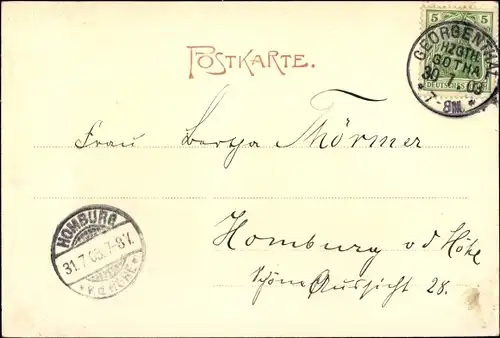 POSTKARTE.
5 5
DEUTSCHES
GEORGENTHAL
HZGTH.
GOTHA
30 7 03
7-8N.
Frau Bertha Thörmer
Homburg v d Höhe
Schöne Aussicht 28.
HOMBURG
31.7.03.7-8V.
v.d. HÖHE